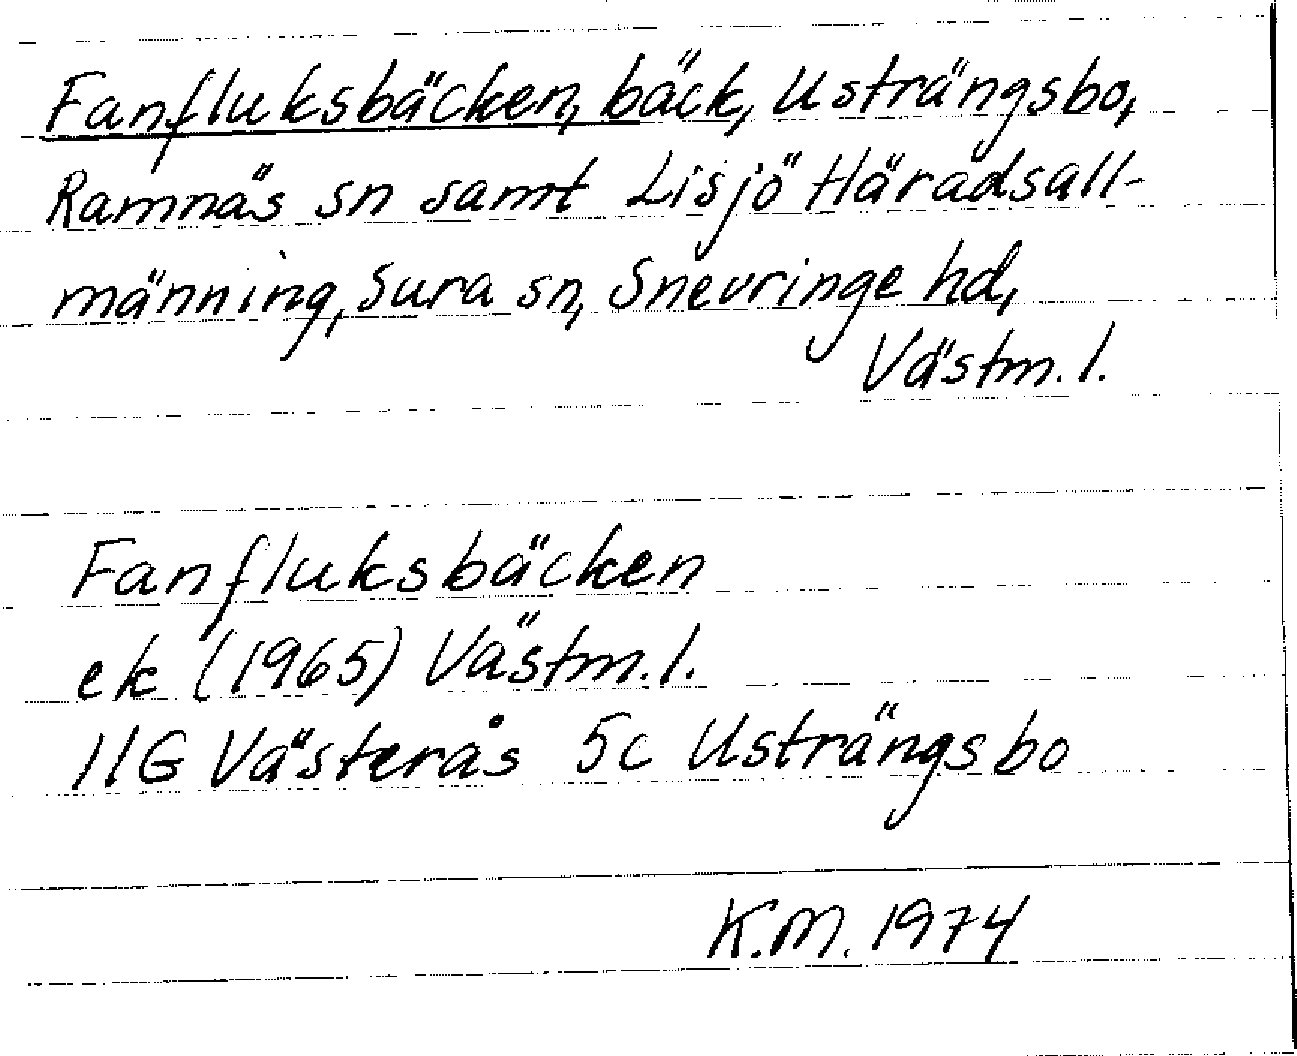 Fanfluksbäcken, bäck, Usträngsbo,
Ramnäs sn samt Lisjö Häradsall-
männing, Sura sn, Snevringe hd,
Västm. l.
Fanfluksbäcken
ek (1965) Västm. l.
11G Västerås 5c Usträngsbo
K.M. 1974